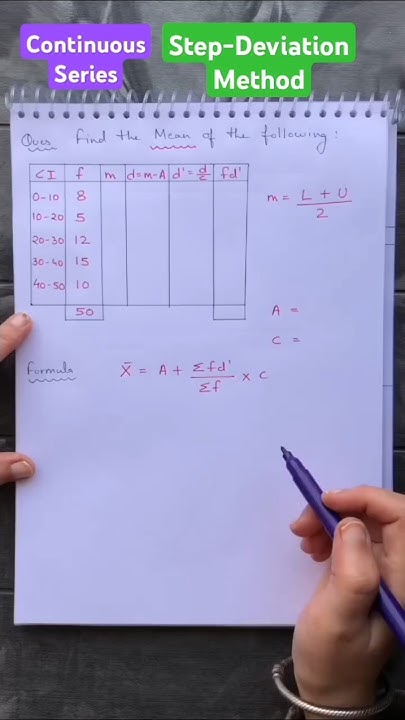 Continuous Series
Step-Deviation Method
Ques Find the Mean of the following:
CI f m d=m-A d'=d/c fd'
0-10 8
10-20 5
20-30 12
30-40 15
40-50 10
50
m = L + U / 2
A =
C =
Formula X̄ = A + Σfd' / Σf × C